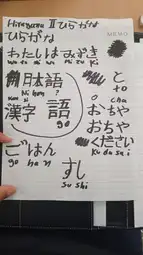 Hiragana II ひらがな
MEMO
ひらがな
わたしは みずき
wa ta si wa Mi zu ki
日本語
Ni hon go
漢字 語
go
と
to
おちゃ
o cha
おちゃ
ください
Ku da sai
ごはん
go ha n
すし
su shi